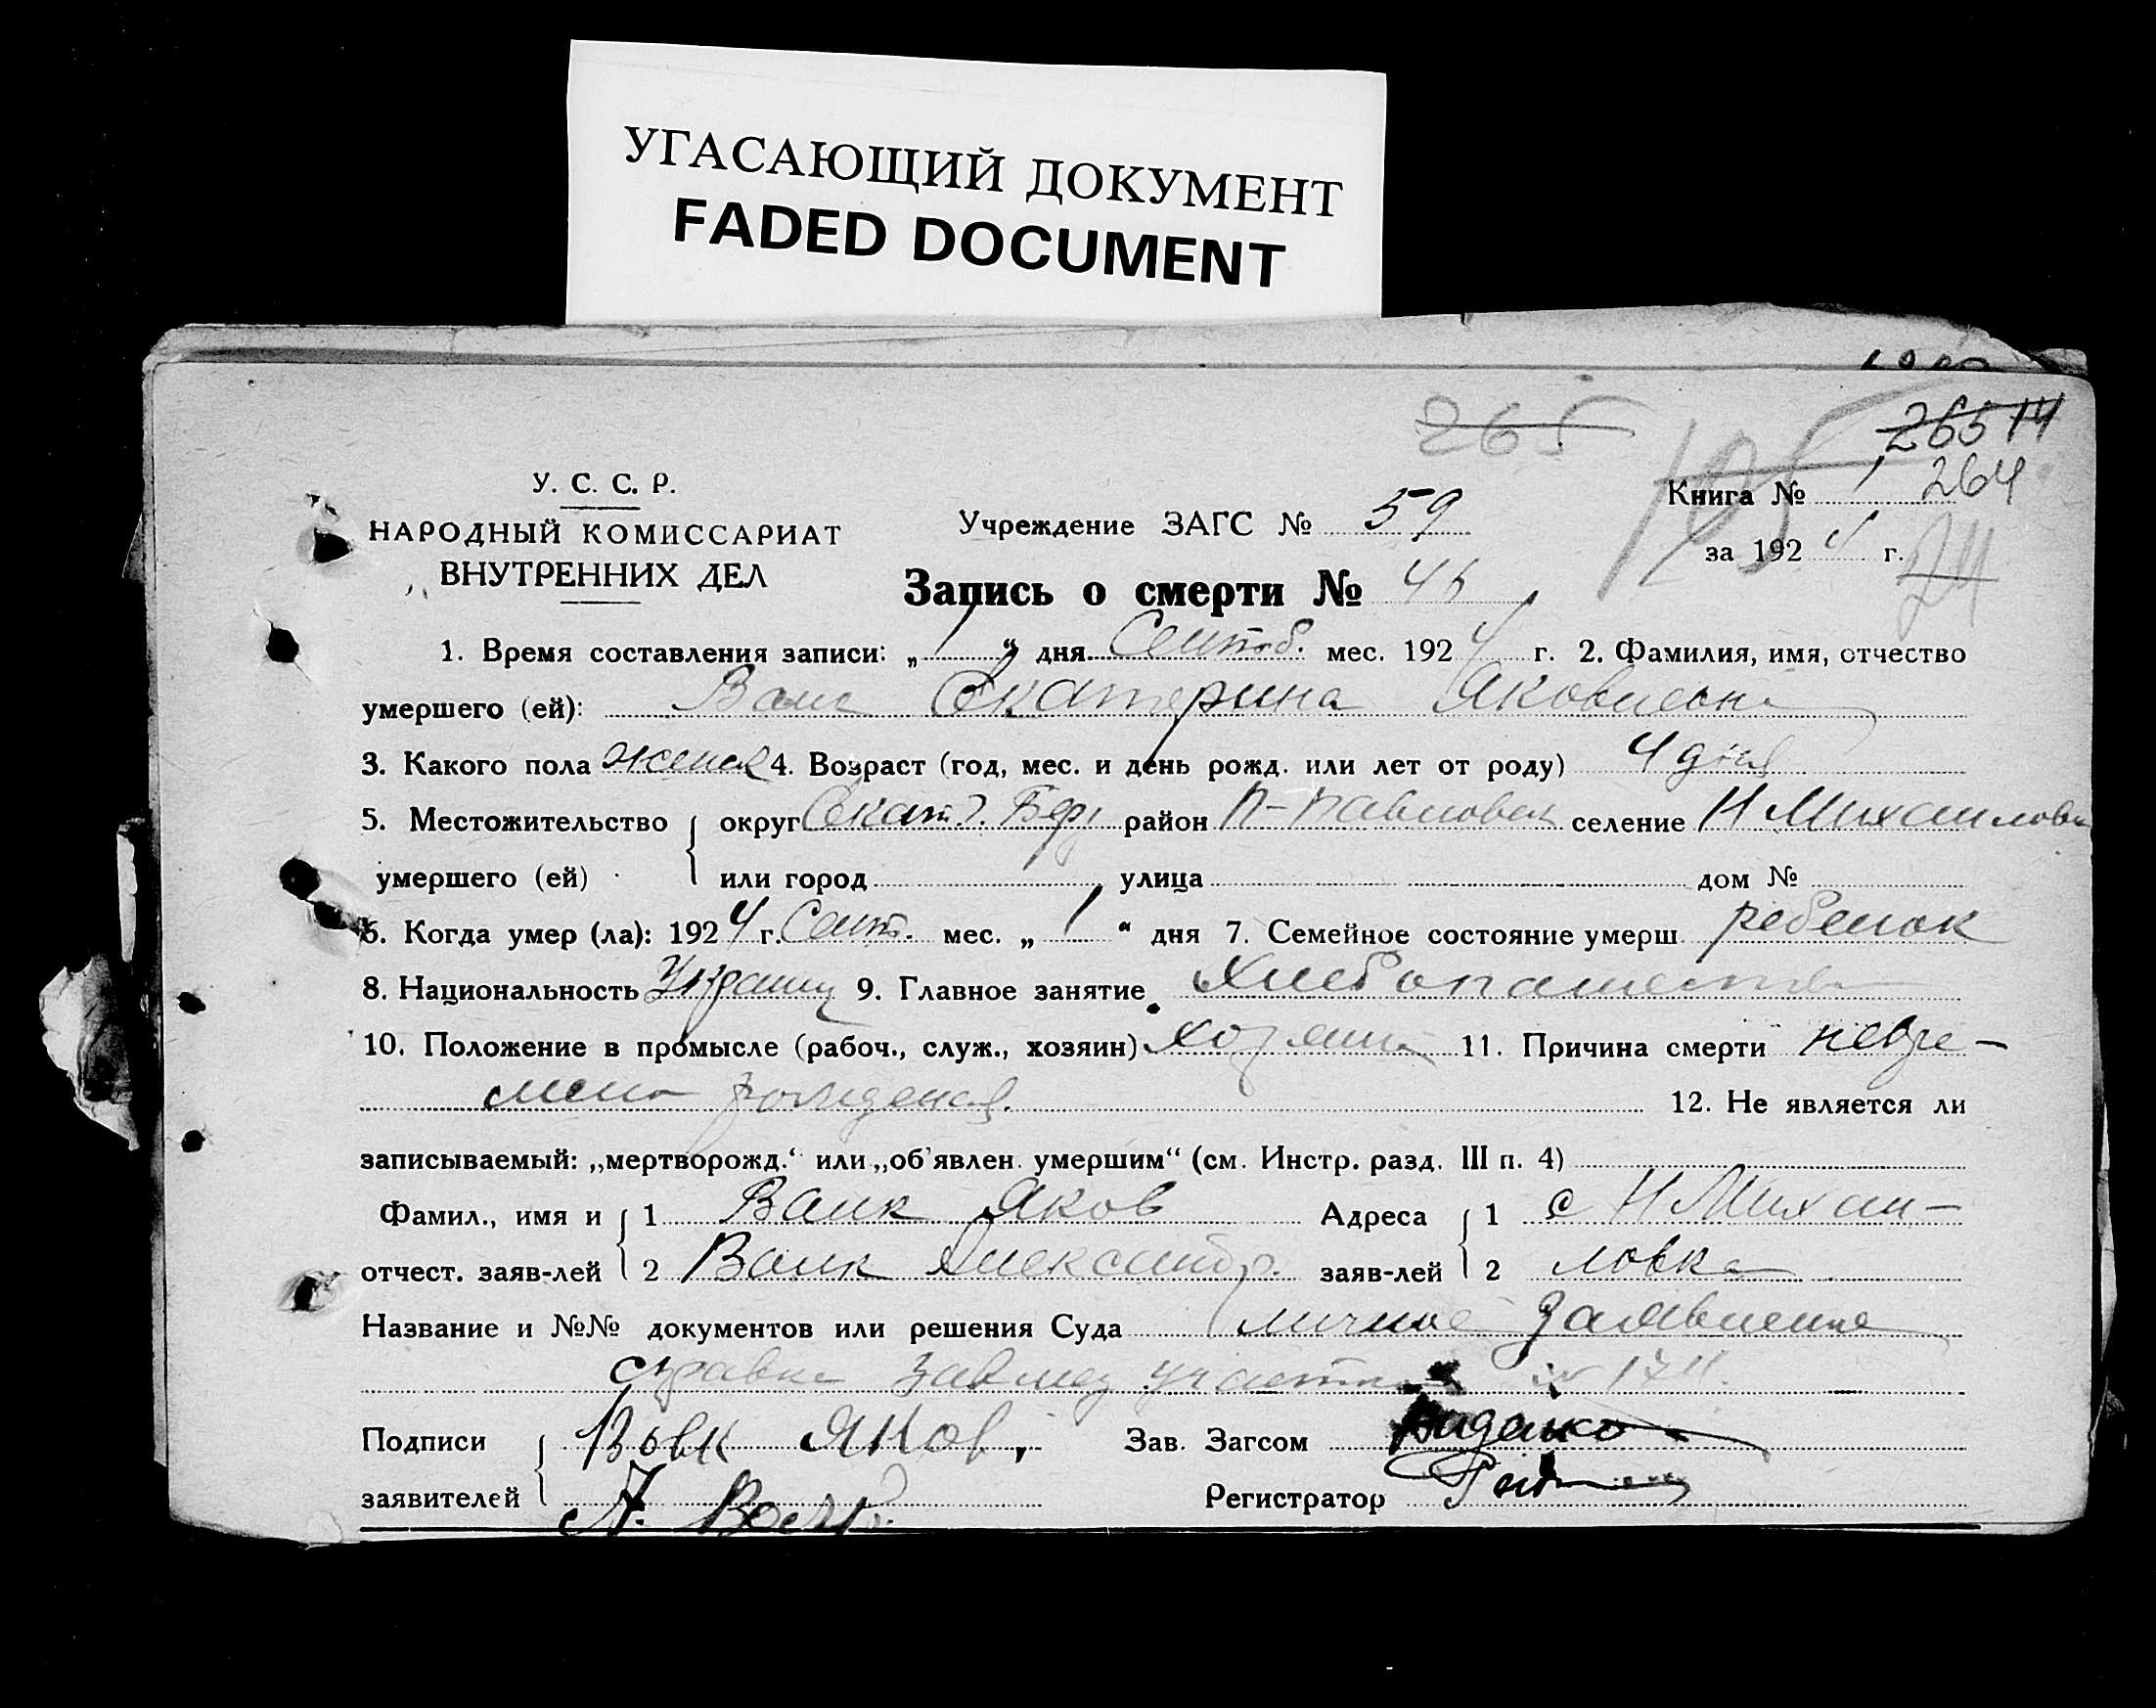 УГАСАЮЩИЙ ДОКУМЕНТ
FADED DOCUMENT
265
26514
105
У. С. С. Р.
НАРОДНЫЙ КОМИССАРИАТ
ВНУТРЕННИХ ДЕЛ
Учреждение ЗАГС № 59
Книга № 1 264
за 1924 г. 24
Запись о смерти №
1. Время составления записи: „1“ дня Сентяб. мес. 1924 г. 2. Фамилия, имя, отчество
умершего (ей): Валк Екатерина Яковлевна
3. Какого пола женск 4. Возраст (год, мес. и день рожд. или лет от роду) 4 дня
5. Местожительство округ Екат. район П-Павловск селение Н Михайловка
умершего (ей) или город улица дом №
6. Когда умер (ла): 1924 г. Сент. мес. „1“ дня 7. Семейное состояние умерш ребенок
8. Национальность Украин 9. Главное занятие Хлебопашество
10. Положение в промысле (рабоч., служ., хозяин) хозяин 11. Причина смерти невре-
мено рожденая.
12. Не является ли
записываемый: „мертворожд.“ или „об'явлен. умершим“ (см. Инстр. разд. III п. 4)
Фамил., имя и 1 Валк Яков Адреса 1 с Н Михай-
отчест. заяв-лей 2 Валк Александр. заяв-лей 2 ловка
Название и №№ документов или решения Суда личное заявление
справка Завмед участка № 1711.
Подписи Вовк Яков, Зав. Загсом
заявителей А. Регистратор